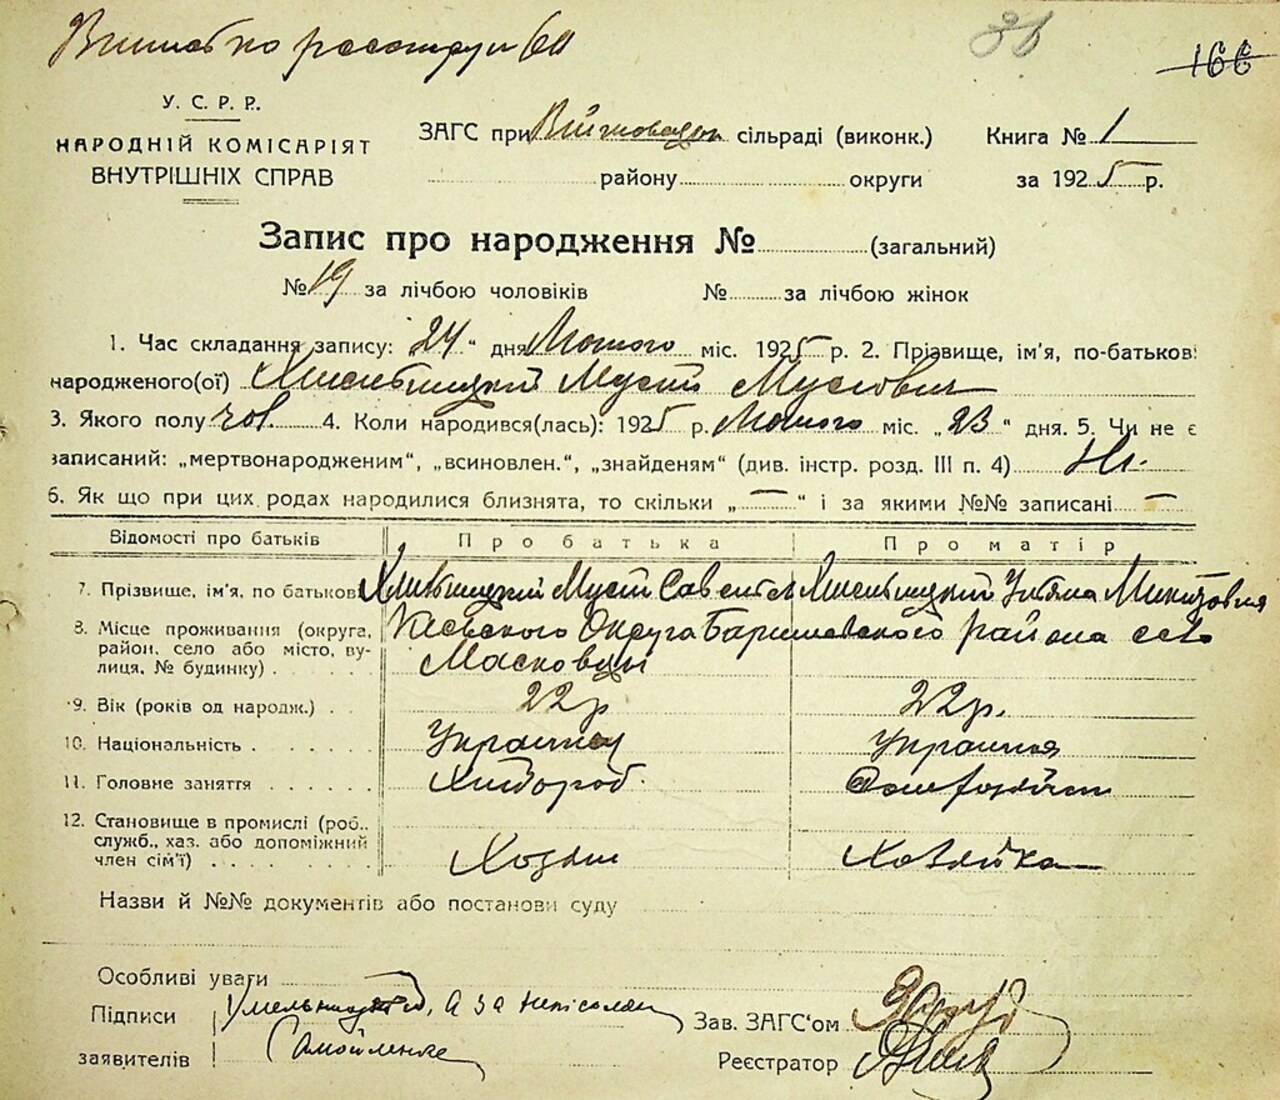 38
166
У. С. Р. Р.
НАРОДНІЙ КОМІСАРІЯТ
ВНУТРІШНІХ СПРАВ
ЗАГС при сільраді (виконк.) Книга № 1
району округи за 1925 р.
Запис про народження № (загальний)
№ 19 за лічбою чоловіків № за лічбою жінок
1. Час складання запису: „24“ дня Лютого міс. 1925 р. 2. Прізвище, ім'я, по-батькові
народженого(ої) Хмельницкий Мусій Мусіович
3. Якого полу чол. 4. Коли народився(лась): 1925 р. Лютого міс. „23“ дня. 5. Чи не є
записаний: „мертвонародженим“, „всиновлен.“, „знайденям“ (див. інстр. розд. III п. 4) Ні.
6. Як що при цих родах народилися близнята, то скільки „—“ і за якими №№ записані —
Відомості про батьків Про батька Про матір
7. Прізвище, ім'я, по батькові Хмельницкий Мусій Хмельницкий Уляна Микитовна
8. Місце проживання (округа, Киевского Округа Баришевского района село
район, село або місто, ву-
лиця, № будинку) Масковци
9. Вік (років од народж.) 22 р 22 р.
10. Національність Украинец Украинка
11. Головне заняття Хлібороб.
12. Становище в промислі (роб.,
служб., хаз. або допоміжний
член сім'ї) Хозяин Хозяйка
Назви й №№ документів або постанови суду
Особливі уваги
Підписи Хмельницкий, а за
Зав. ЗАГС'ом
заявителів Самойленко
Реєстратор